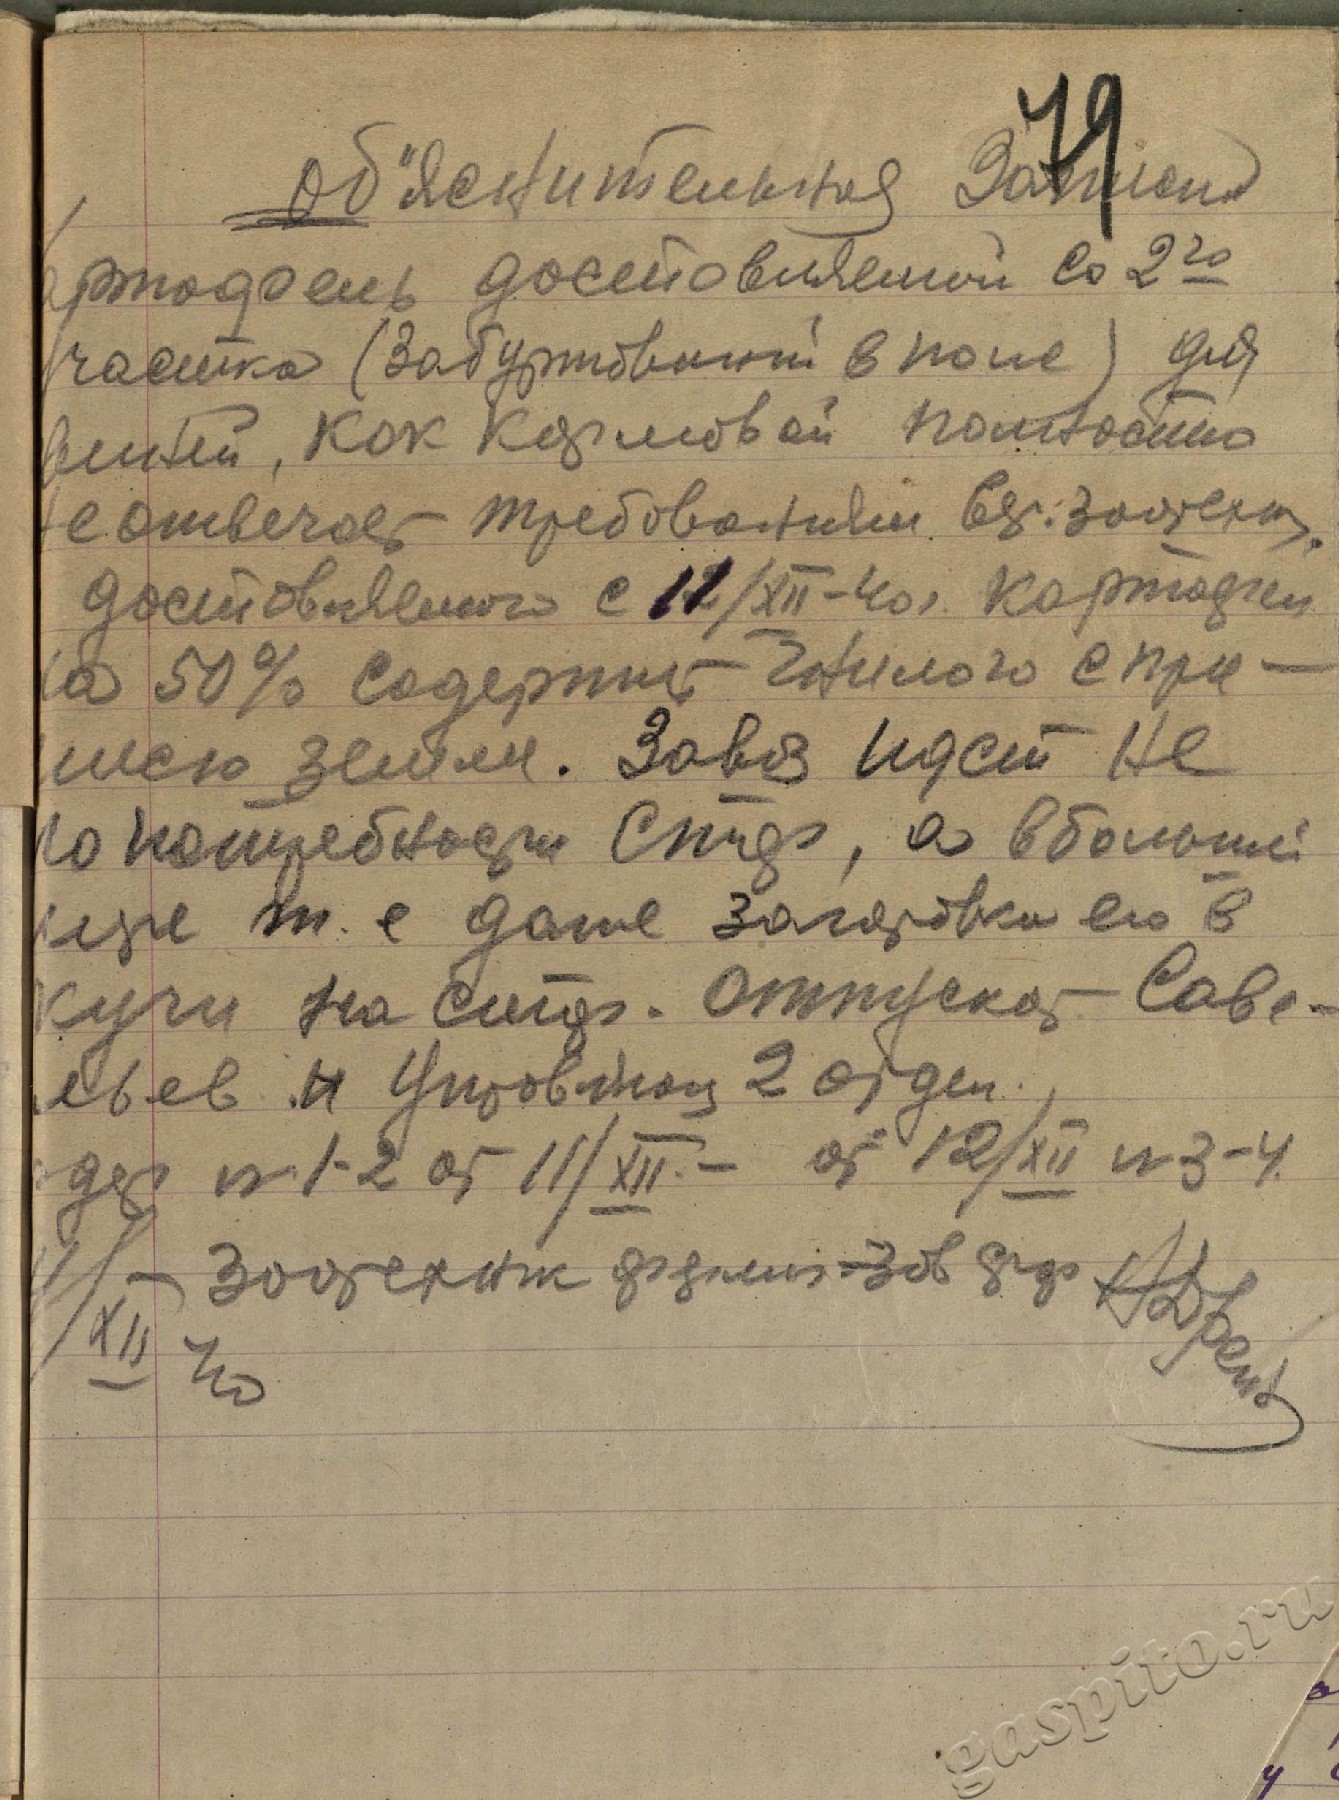 79
Об"яснительная Записка
артофель доставляемый со 2го
участка (Забуртованный в поле) для
свиней, как кормовой полностью
не отвечает требованиям вет. зоотехн.
доставляемого с 12/XII-40г. картофель
на 50% содержит гнилого с при-
месью земли. Завоз идет не
по потребности Стада, а в большей
мере т. е даже заготовка его в
кучи на Отпускает Саве-
льев и 2 отдел.
№ 1-2 от 11/XII. - от 12/XII № 3-4.
Зоотехник
/XII 40
gaspito.ru